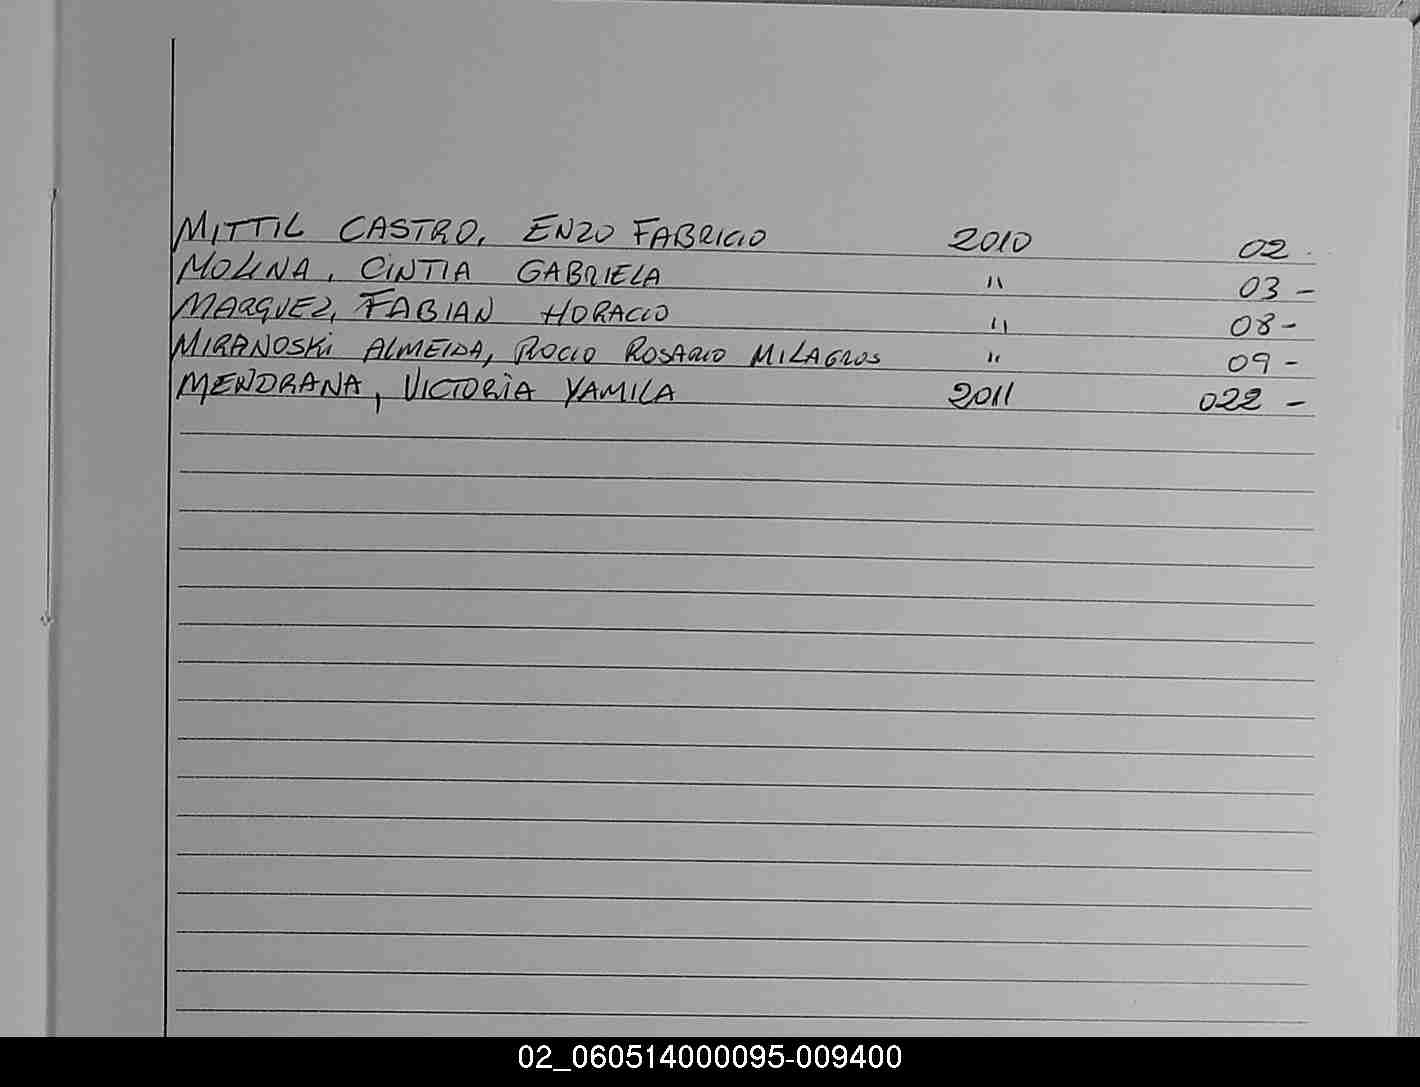 MITTIL CASTRO, ENZO FABRICIO 2010 02
MOLINA, CINTIA GABRIELA " 03 -
MARQUEZ, FABIAN HORACIO " 08 -
MIRANOSKI ALMEIDA, ROCIO ROSARIO MILAGROS " 09 -
MENDRANA, VICTORIA YAMILA 2011 022 -
02_060514000095-009400